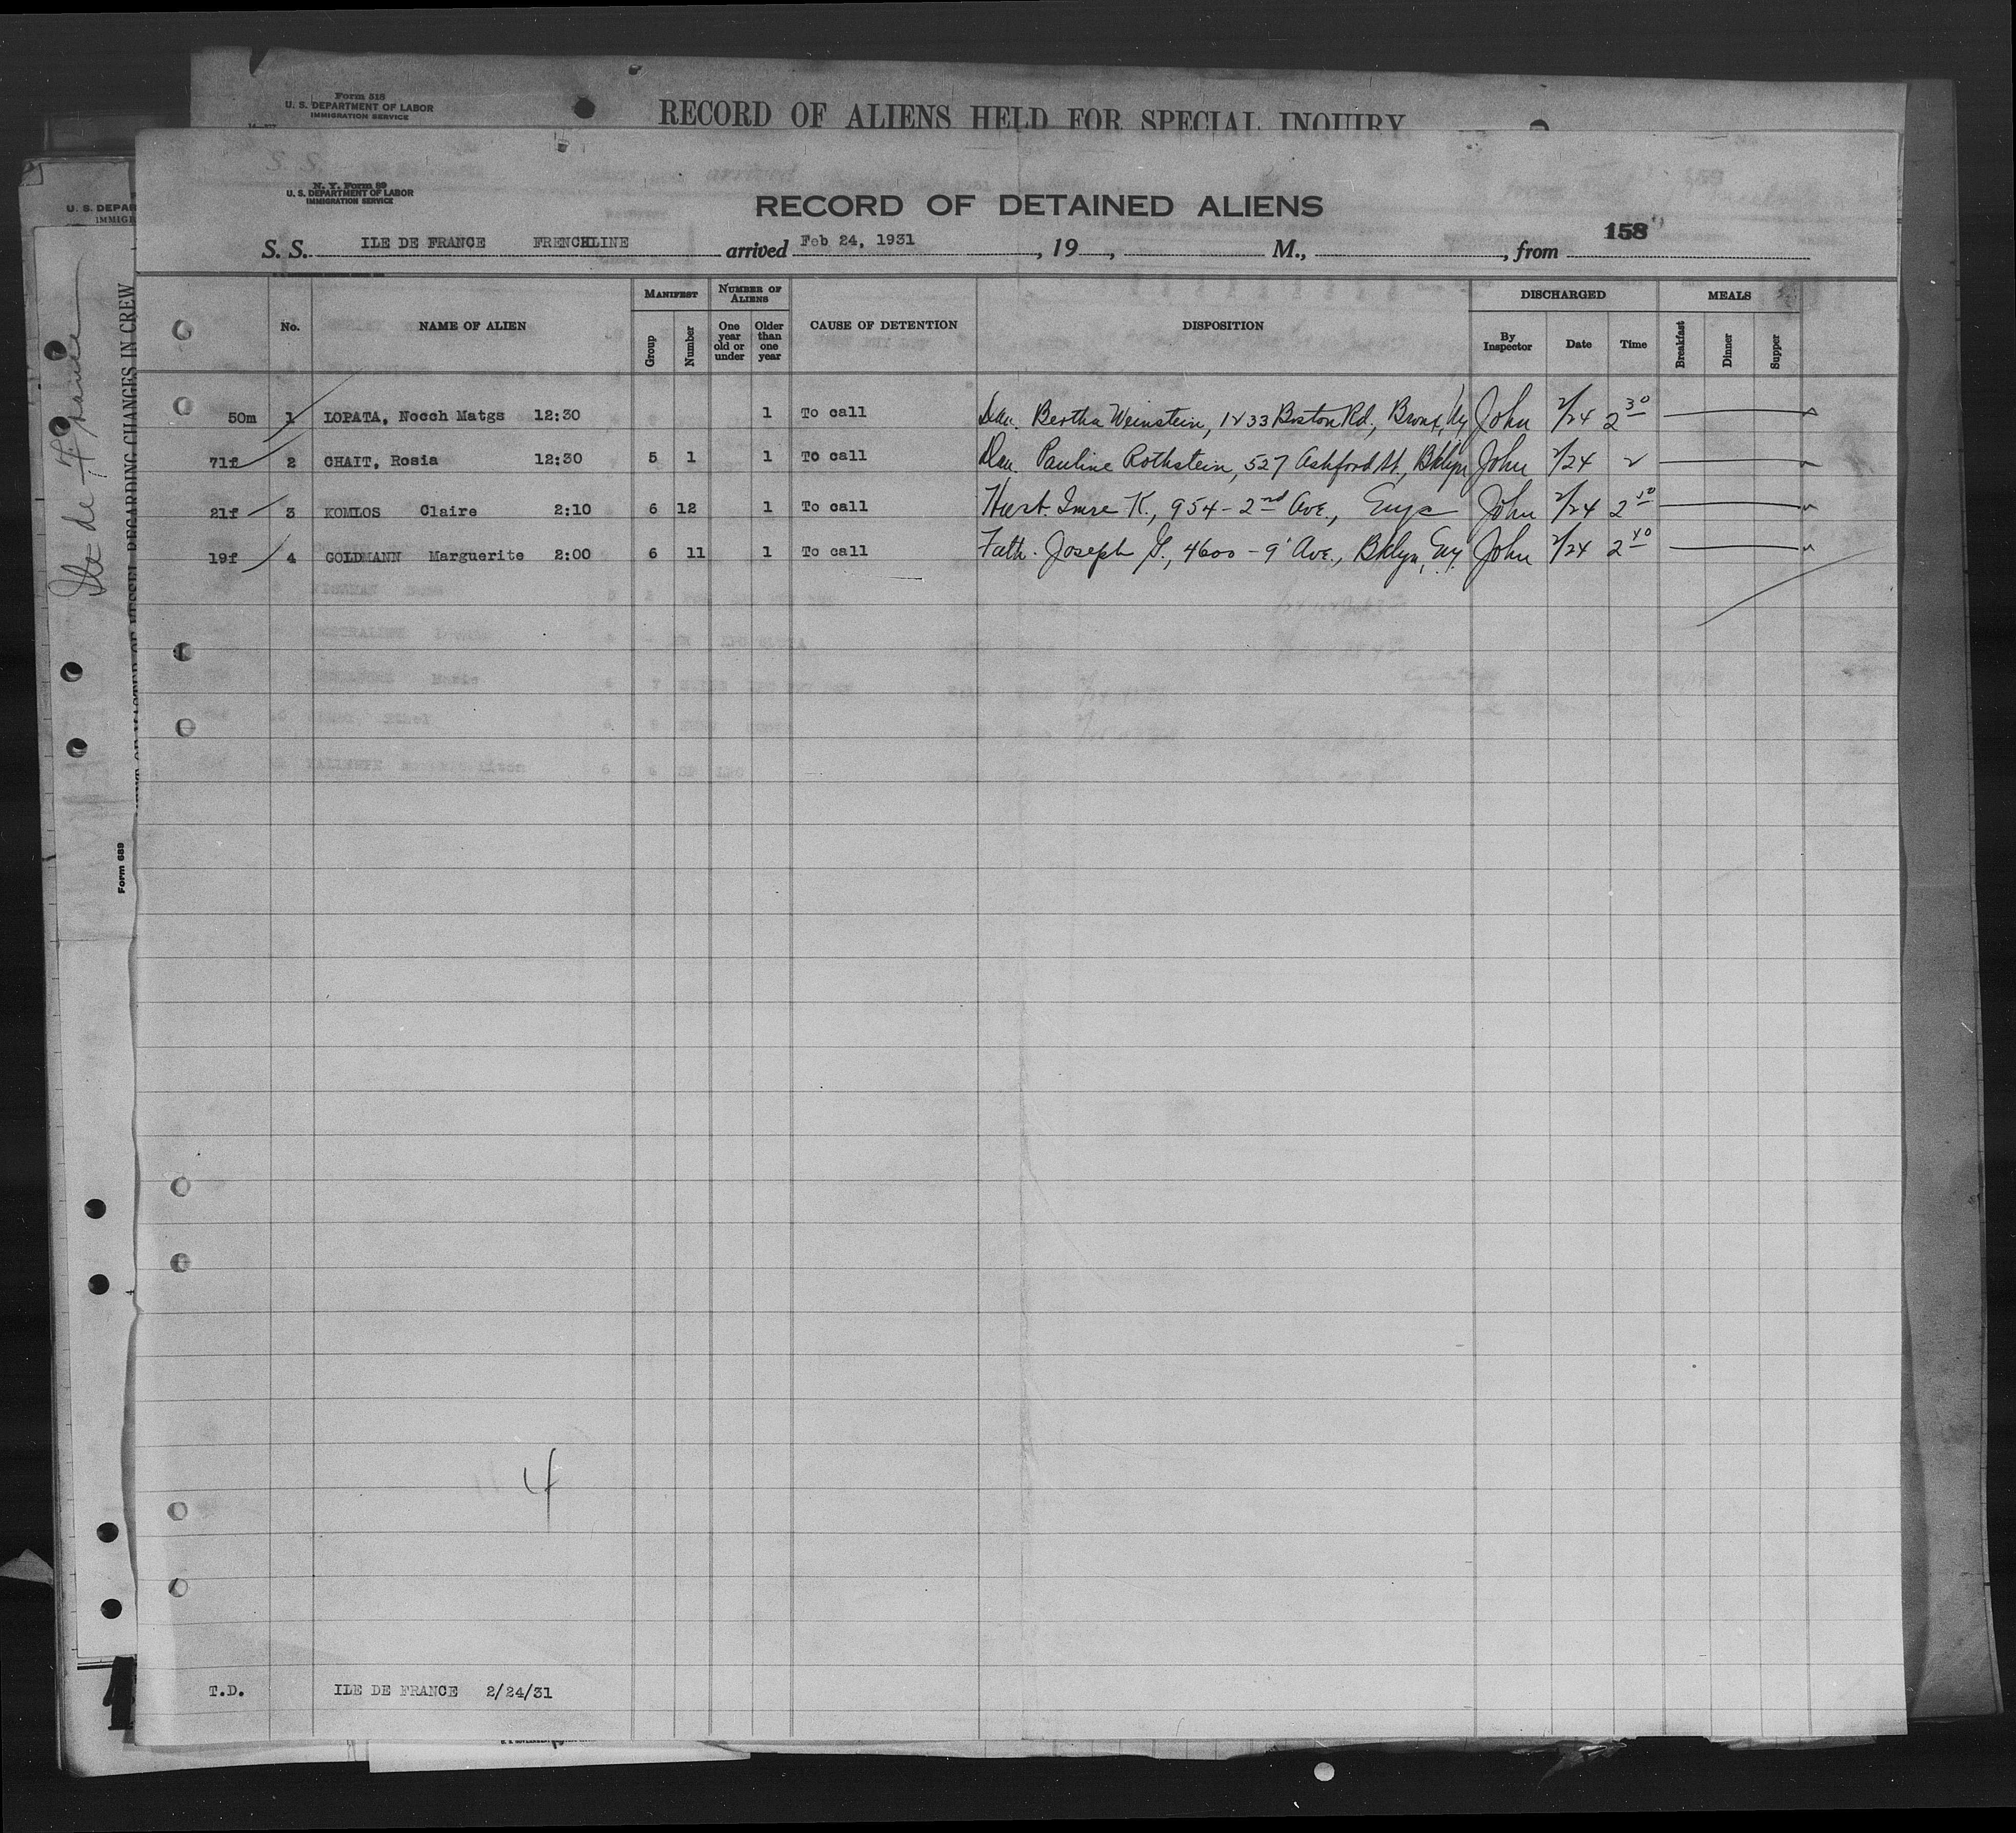 Form 518
U. S. DEPARTMENT OF LABOR
IMMIGRATION SERVICE
RECORD OF ALIENS HELD FOR SPECIAL INQUIRY
N. Y. Form 89
U. S. DEPARTMENT OF LABOR
IMMIGRATION SERVICE
RECORD OF DETAINED ALIENS
158
S. S. ILE DE FRANCE FRENCHLINE arrived Feb 24, 1931, 19 , M., , from
No. NAME OF ALIEN MANIFEST Group Number NUMBER OF ALIENS One year old or under Older than one year CAUSE OF DETENTION DISPOSITION DISCHARGED By Inspector Date Time MEALS Breakfast Dinner Supper
50m 1 LOPATA, Nocch Matgs 12:30 1 To call Dau. Bertha Weinstein, 1433 Boston Rd., Bronx, Ny John 2/24 2 30
71f 2 CHAIT, Rosia 12:30 5 1 1 To call Dau. Pauline Rothstein, 527 Ashford St., Bklyn John 2/24
21f 3 KOMLOS Claire 2:10 6 12 1 To call Husb. Imre K., 954 - 2nd Ave., John 2/24 2
19f 4 GOLDMANN Marguerite 2:00 6 11 1 To call Fath. Joseph G., 4600 - 9' Ave., Bklyn, John 2/24 2 40
4
T.D. ILE DE FRANCE 2/24/31
U. S. DEPAR
IMMIGR
Ile de France
REGARDING CHANGES IN CREW
Form 689